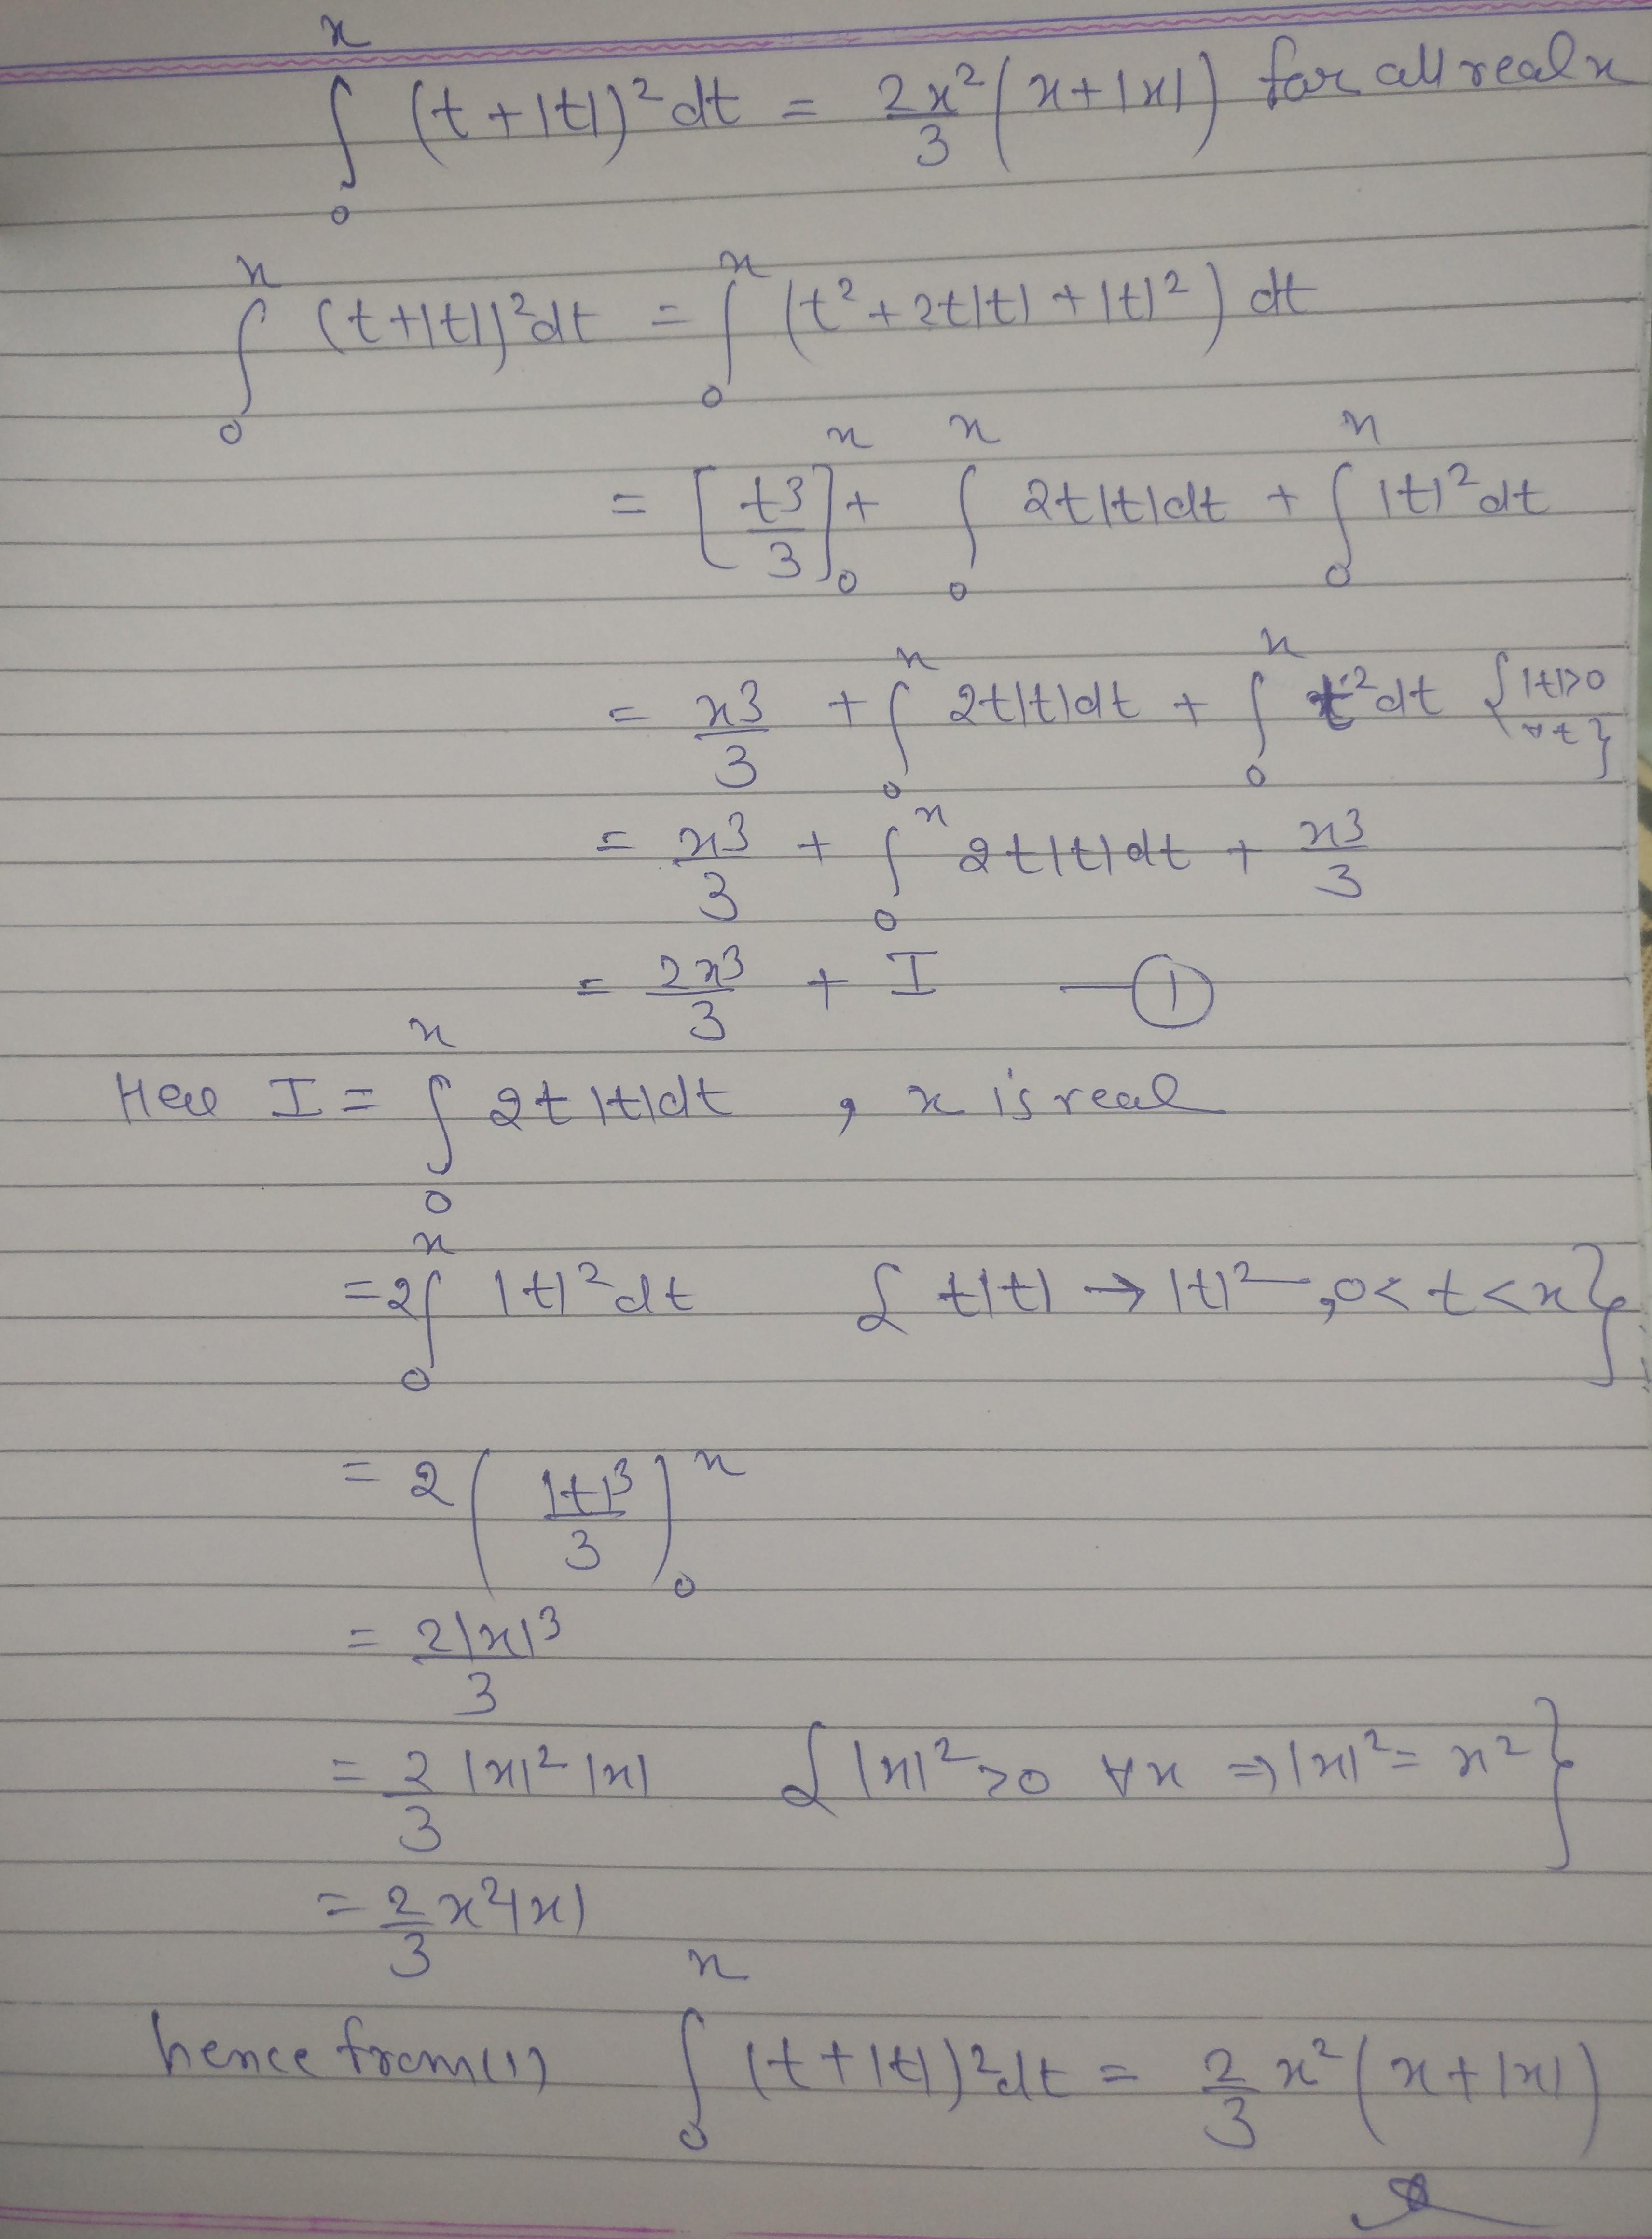 ∫₀ˣ (t+|t|)² dt = 2x²/3 (x+|x|) for all real x
∫₀ˣ (t+|t|)² dt = ∫₀ˣ (t² + 2t|t| + |t|²) dt
= [t³/3]₀ˣ + ∫₀ˣ 2t|t| dt + ∫₀ˣ |t|² dt
= x³/3 + ∫₀ˣ 2t|t| dt + ∫₀ˣ t² dt {|t|>0 ∀ t}
= x³/3 + ∫₀ˣ 2t|t| dt + x³/3
= 2x³/3 + I — ①
Here I = ∫₀ˣ 2t|t| dt , x is real
= 2∫₀ˣ |t|² dt { t|t| → |t|² , 0 < t < x }
= 2 (|t|³/3)₀ˣ
= 2|x|³/3
= 2/3 |x|² |x| { |x|² >0 ∀x ⇒ |x|² = x² }
= 2/3 x²|x|
hence from (1) ∫₀ˣ (t+|t|)² dt = 2/3 x² (x+|x|)